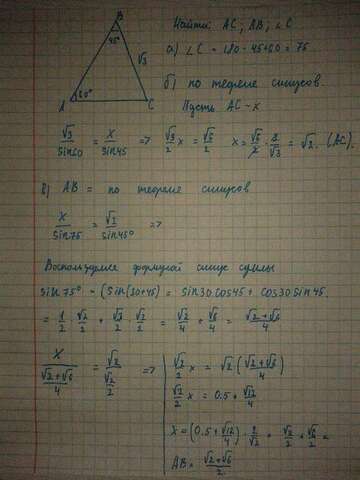 B
45°
√3
A
60°
C
Найти AC; AB; ∠C
а) ∠C = 180 - 45+60 = 75
б) по теореме синусов.
Пусть AC - x
√3/sin60 = x/sin45 => √3/2 x = √6/2 x = √6/2 · 2/√3 = √2. (AC).
в) AB = по теореме синусов
x/sin75 = √2/sin45° =>
Воспользуемся формулой синус суммы
sin75° - (sin(30+45) = sin30cos45 + cos30sin45.
= 1/2 · √2/2 + √3/2 · √2/2 = √2/4 + √6/4 = √2+√6/4
x/(√2+√6/4) = √2/(√2/2) =>
√2/2 x = √2(√2+√6/4)
√2/2 x = 0.5 + √12/4
x = (0.5+√12/4) · 2/√2 = √2/2 + √6/2 =
AB = √2+√6/2.